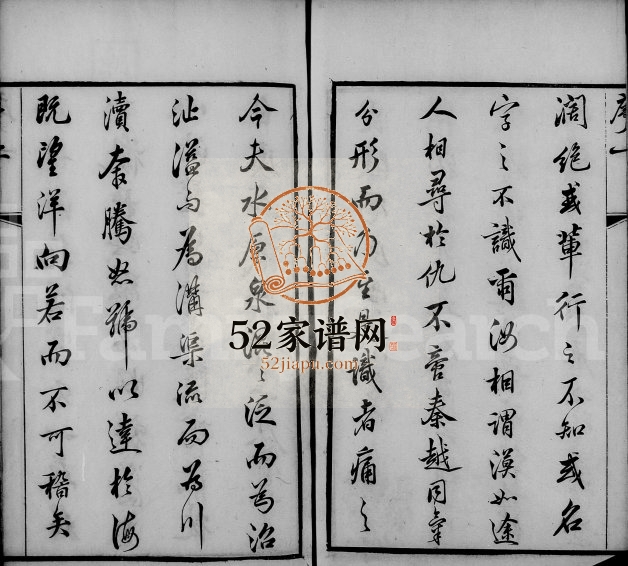 序一
闊絶或輩行之不知或名
字之不識爾汝相謂漠如途
人相尋於仇不啻秦越同氣
分形而識者痛之
今夫水原泉泛而為沼
沚溢而為溝渠流而為川
瀆奔騰怒號以達於海
既望洋向若而不可稽矣
52家谱网
52jiapu.com